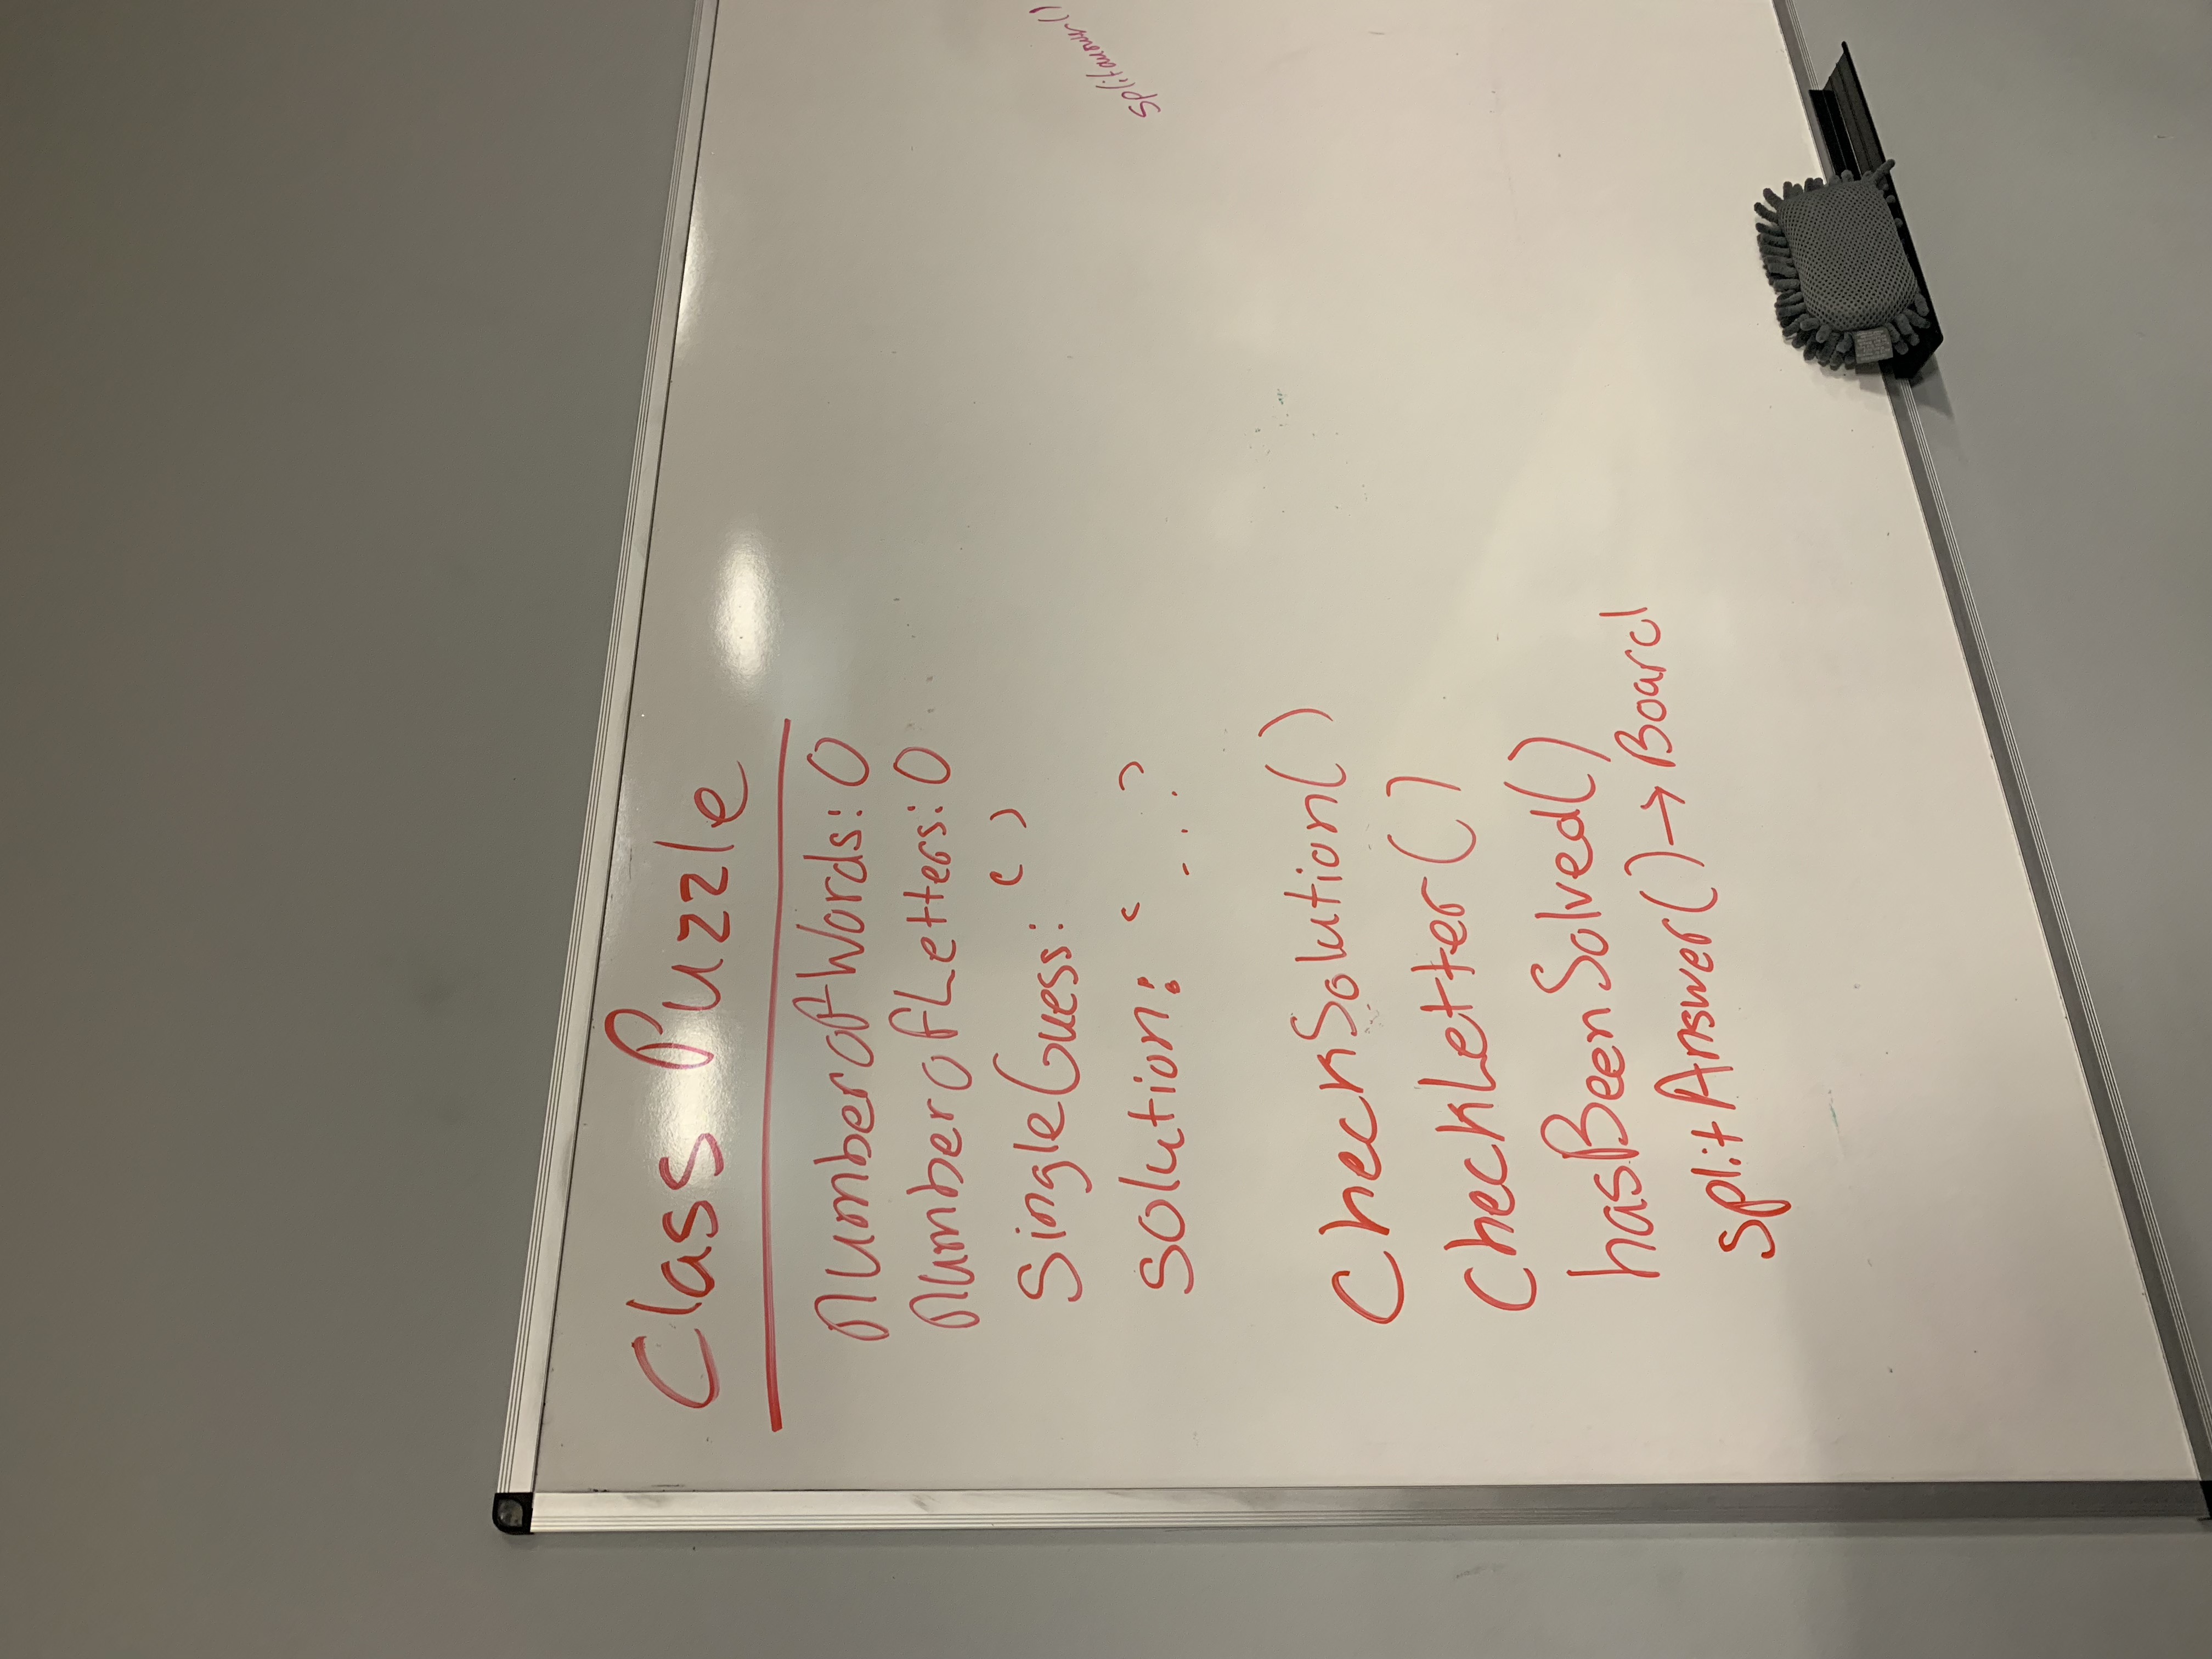 Class Puzzle
numberofWords: 0
numberofLetters: 0
SingleGuess: ‘ ’
solution: ‘ ... ’
CheckSolution()
CheckLetter()
hasBeenSolved()
splitAnswer() → Board
splitanswer()